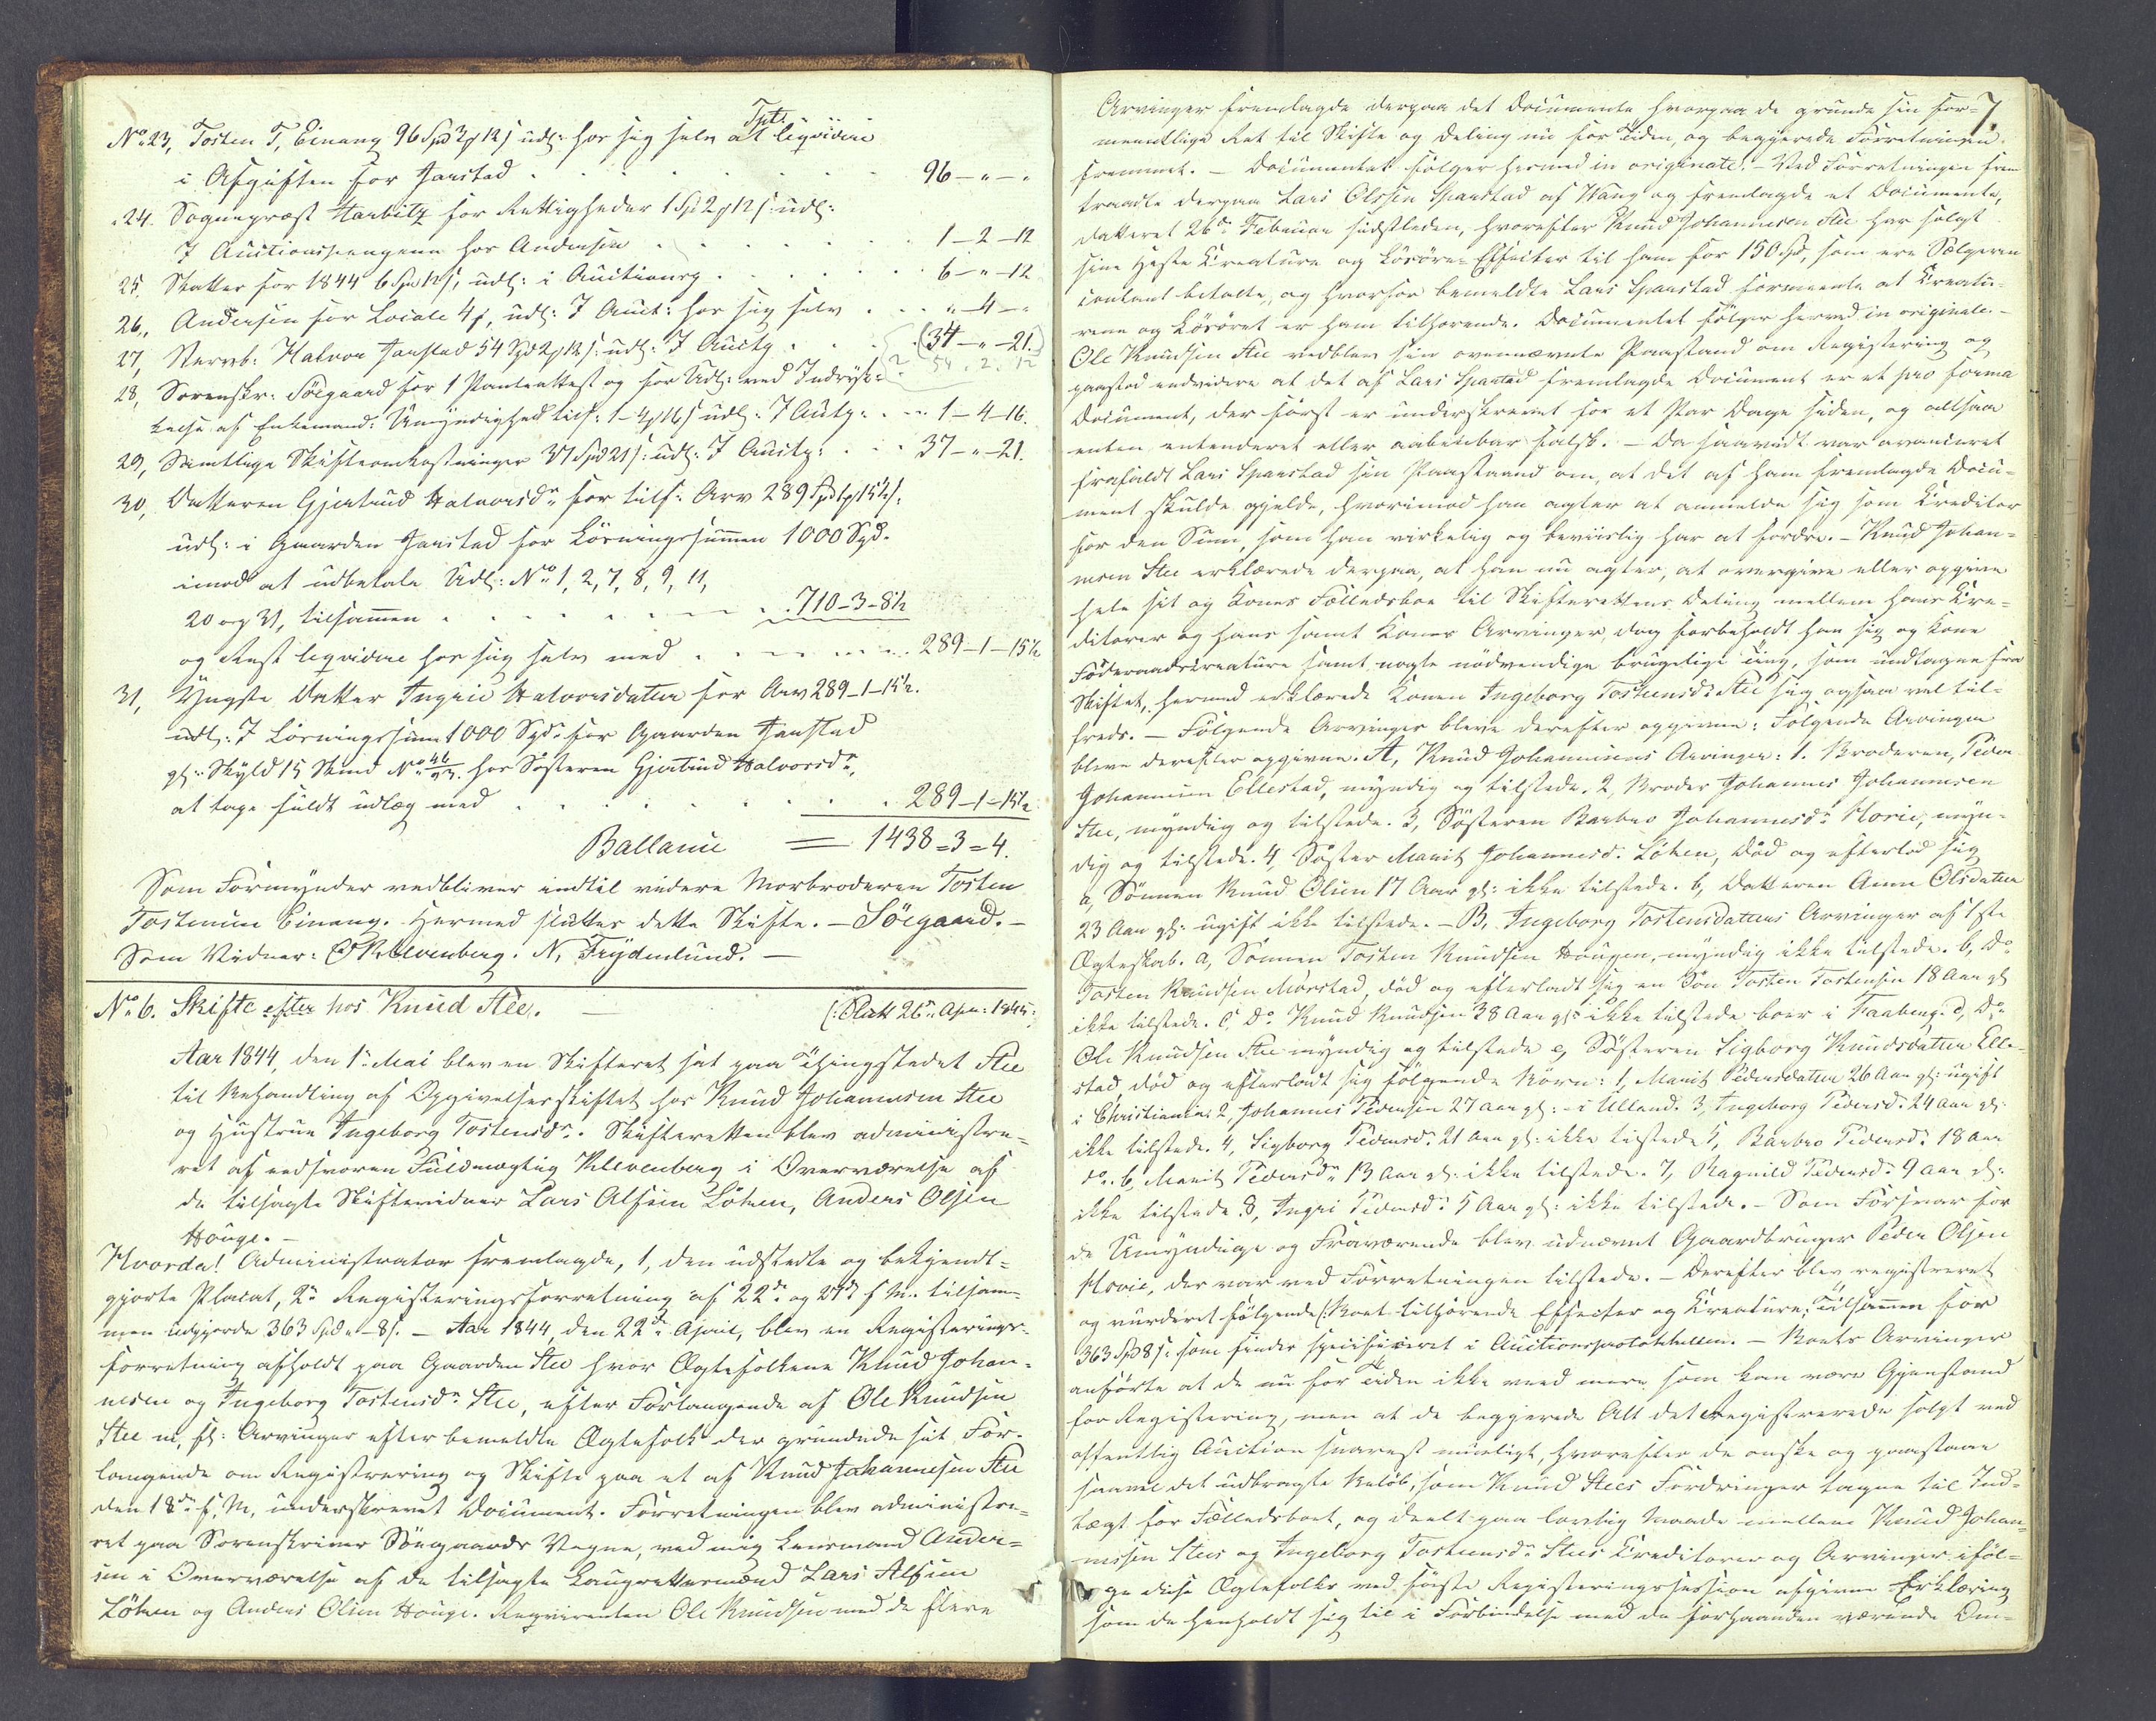 No: 23, Tosten T, Einang 96 Spd 3 # 12 s udl: hos sig selv at liqvidere
i Afgiften for Jarstad . . . . . . . 96 – " – "
" 24. Sognepræst Harbitz for Rettigheder 1 Sp 2 # 12 s: udl:
I Auctionspengene hos Andersen . . . . . 1 – 2 – 12
25. Skatter for 1844 6 Spd 12 s, udl: i Auctionsp . . . . . 6 – " – 12
26, Andersen for Locale 4 #, udl: I Auct: hos sig selv . . . " – 4 – "
27, Stervb: Halvor Jarstad 54 Spd 2 # 12 s: udl: I Auctp . . . (34 – " – 21.)
54. 2. 12
28, Sorenskr: Sörgaard for 1 Panteattest og for Udl: ved Indryk-
kelse af Enkemand: Umyndighed tils: 1 – 4 # 16 s udl: I Autp: . . . 1 – 4 – 16.
29, Samtlige Skifteomkostninger 37 Spd 21 s: udl: I Auctp: . . . 37 – " – 21.
30, Datteren Gjertrud Halvorsdr for tilf: Arv 289 Spd 1 # 15½ s:
udl: i Gaarden Jarstad for Lösningssummen 1000 Spd.
imod at udbetale Udl: No 1, 2, 7, 8, 9, 11,
20 og 31, tilsammen . . . . . . 710 – 3 – 8½
og Rest liqvidere hos sig selv med . . . . . . 289 – 1 – 15½
31, Yngste Datter Ingrie Halvorsdatter for Arv 289 – 1 – 15½.
udl: I Lösningssum 1000 Spd. for Gaarden Jarstad
gl: Skyld 15 Skind No hos Sösteren Gjertrud Halvorsdr,
at tage fuldt udlæg med . . . . . . . 289 – 1 – 15½
Ballance = 1438 = 3 = 4.
Som Formynder vedbliver indtil videre Morbroderen Tosten
Tostensen Einang. Hermed sluttes dette Skifte. – Sörgaard. –
Som Vidner: Klevenberg. N, Frydenlund. –
No 6. Skifte efter hos Knud Stee. – (: Slutt 26de Apr: 1845:
Aar 1844, den 1te Mai blev en Skifteret sat paa Thingstedet Stee
til Behandling af Opgivelsesskiftet hos Knud Johannesen Stee
og Hustrue Ingeborg Tostensdr. Skifteretten blev administre-
ret af edsvoren Fuldmægtig Klevenberg i Overværelse af
de tilsagte Skiftevidner Lars Alfsen Löken, Anders Olsen
Houge. –
Hvorda! Administrator fremlagde, 1, den udstedte og bekjendt-
gjorte Placat, 2n Registeringsforretning af 22de og 27de f. M. tilsam-
men udgjorde 363 Spd " – 8 s. – Aar 1844, den 22de April, blev en Registerings-
forretning afholdt paa Gaarden Stee hvor Ægtefolkene Knud Johan-
nesen og Ingeborg Tostensdr Stee, efter Forlangende af Ole Knudsen
Stee m, fl: Arvinger efter bemeldte Ægtefolk der grundede sit For-
langende om Registrering og Skifte paa et af Knud Johannesen Stee
den 18de f. M, underskrevet Document. Forretningen blev administre-
ret paa Sorenskriver Sörgaards Vegne, ved mig Lensmand Ander-
sen i Overværelse af de tilsagte Laugrettesmænd Lars Alfsen
Löken og Anders Olsen Houge. Reqvirenten Ole Knudsen med de flere
7.
Arvinger fremlagde derpaa det Documente hvorpaa de grunde sin for-
meentlige Ret til Skifte og Deling nu for Tiden, og begjerede Forretningen
fremmet. – Documentet fölger hermed in originale. – Ved Forretningen frem
traadte derpaa Lars Olssen Sparstad af Wang og fremlagde et Documente,
dateret 26de Februar sidstleden, hvorefter Knud Johannesen Stee har solgt
sine Heste Kreature og Lösöre-Effecter til ham for 150 Spd, som ere Sælgeren
contant betalte, og hvorfor bemeldte Lars Sparstad formente at Kreatu-
rene og Lösöret er ham tilhorende. Documentet fölger herved in originale. –
Ole Knudsen Stee vedblev sin ovennævnte Paastand om Registering og
paastod endvidere at det af Lars Sparstad fremlagde Document er et pro forma
Document, der först er underskrevet for et Par Dage siden, og altsaa
enten antenderet eller aabenbar falsk. – Da saavidt var avanceret
frafaldt Lars Sparstad sin Paastaand om, at det af ham fremlagde Docu-
ment skulde gjelde, hvorimod han agter at anmelde sig som Creditor
for den Sum, som han virkelig og beviislig har at fordre. – Knud Johan-
nesen Stee erklærede derpaa, at han nu agter, at overgive eller opgive
hele sit og Kones Fælledsboe til Skifterettens Deling mellem hans Cre-
ditorer og hans samt Kones Arvinger, dog forbeholdt han sig og Kone
Föderaadskreature samt nogle nödvendige brugelige Ting, som undtagne fra
Skiftet, hermed erklærede Konen Ingeborg Tostensdr Stee sig ogsaa vel til-
freds. – Fölgende Arvinger bleve derefter opgivne: Fölgende Arvinger
bleve derefter opgivne. A, Knud Johannesens Arvinger: 1. Broderen, Peder
Johannesen Ellestad, myndig og tilstede. 2, Broder Johannes Johannesen
Stee, myndig og tilstede. 3, Sösteren Barbro Johannesdr Hovie, myn-
dig og tilstede. 4, Söster Marit Johannesd. Löken, död og efterlod sig
a, Sönnen Knud Olsen 17 Aar gl: ikke tilstede. b, Datteren Anne Olsdatter
23 Aar gl: ugift ikke tilstede. – B, Ingeborg Tostensdatters Arvinger af 1ste
Ægteskab. a, Sönnen Tosten Knudsen Hougen, myndig ikke tilstede. b, Do
Tosten Knudsen Mörstad, död og efterladt sig en Sön Tosten Tostensen 18 Aar gl
ikke tilstede. c, Do Knud Knudsen 38 Aar gl: ikke tilstede boer i Faaberg. d, Do
Ole Knudsen Stee myndig og tilstede e, Sösteren Sigborg Knudsdatter Elle-
stad, död og efterladt sig fölgende Börn: 1, Marit Pedersdatter 26 Aar gl: ugift
i Christiania. 2, Johannes Pedersen 27 aar gl: – i Ulland. 3, Ingeborg Pedersd. 24 aar gl:
ikke tilstede. 4, Sigborg Pedersd. 21 Aar gl: ikke tilstede 5, Barbro Pedersd. 18 Aar
do. 6, Marit Pedersdr 13 Aar gl: ikke tilstede. 7, Ragnild Pedersdr 9 aar gl:
ikke tilstede. 8, Ingri Pedersd. 5 Aar gl: ikke tilstede. – Som Forsvar for
de Umyndige og Fraværende blev udnævnt Gaardbruger Peder Olsen
Hovie, der var ved Forretningen tilstede. – Derefter blev registreret
og vurderet fölgende (: Boet tilhörende Effecter og Kreature: Tilsammen for
363 Spd 8 s: som findes specificeret i Auctionsprotokollen. – Boets Arvinger
anförte at de nu for Tiden ikke veed mere som kan være Gjenstand
for Registering, men at de begjerede Alt det Registrerede solgt ved
offentlig Auction snarest mueligt, hvorefter de önske og paastaae
saavel det udbragte Belöb, som Knud Stees Fordringer tagne til Ind-
tægt for Fælledsboet, og deelt paa lovlig Maade mellem Knud Johan-
nessen Stees og Ingeborg Tostensdr Stees Creditorer og Arvinger, ifölge
disse Ægtefolks ved förste Registeringssession afgivne Erklæring
som de henholdt sig til i Forbindelse med de forhaanden værende Om-